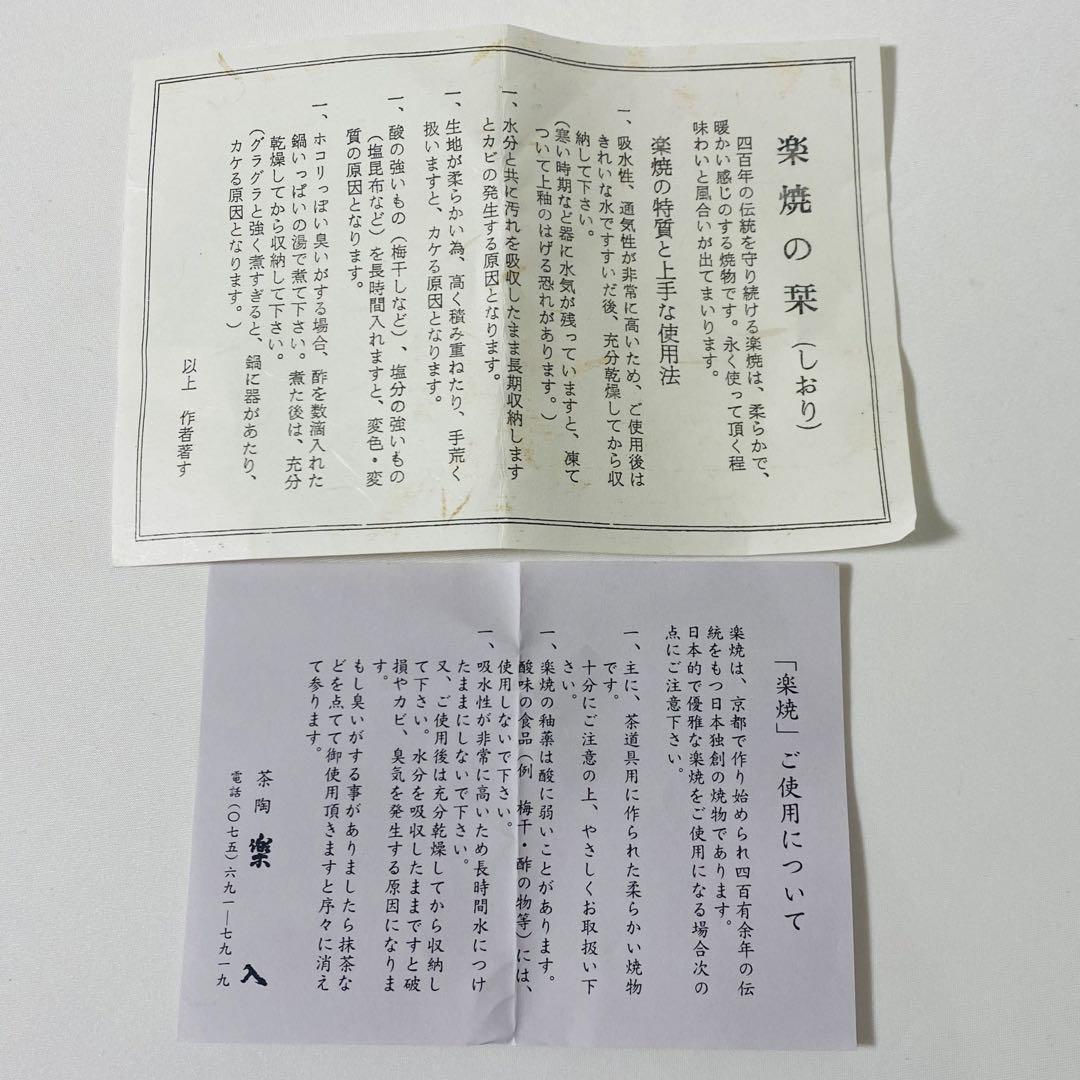 楽焼の栞(しおり)
四百年の伝統を守り続ける楽焼は、柔らかで、
暖かい感じのする焼物です。永く使って頂く程
味わいと風合いが出てまいります。
楽焼の特質と上手な使用法
一、吸水性、通気性が非常に高いため、ご使用後は
きれいな水ですすいだ後、充分乾燥してから収
納して下さい。
(寒い時期など器に水気が残っていますと、凍て
ついて上釉のはげる恐れがあります。)
一、水分と共に汚れを吸収したまま長期収納します
とカビの発生する原因となります。
一、生地が柔らかい為、高く積み重ねたり、手荒く
扱いますと、カケる原因となります。
一、酸の強いもの(梅干しなど)、塩分の強いもの
(塩昆布など)を長時間入れますと、変色・変
質の原因となります。
一、ホコリっぽい臭いがする場合、酢を数滴入れた
鍋いっぱいの湯で煮て下さい。煮た後は、充分
乾燥してから収納して下さい。
(グラグラと強く煮すぎると、鍋に器があたり、
カケる原因となります。)
以上 作者著す
「楽焼」ご使用について
楽焼は、京都で作り始められ四百有余年の伝
統をもつ日本独創の焼物であります。
日本的で優雅な楽焼をご使用になる場合次の
点にご注意下さい。
一、主に、茶道具用に作られた柔らかい焼物
です。
十分にご注意の上、やさしくお取扱い下
さい。
一、楽焼の釉薬は酸に弱いことがあります。
酸味の食品(例 梅干・酢の物等)には、
使用しないで下さい。
一、吸水性が非常に高いため長時間水につけ
たままにしないで下さい。
又、ご使用後は充分乾燥してから収納し
て下さい。水分を吸収したままですと破
損やカビ、臭気を発生する原因になりま
す。
もし臭いがする事がありましたら抹茶な
どを点てて御使用頂きますと序々に消え
て参ります。
茶陶 楽入
電話(〇七五)六九一―七九一九